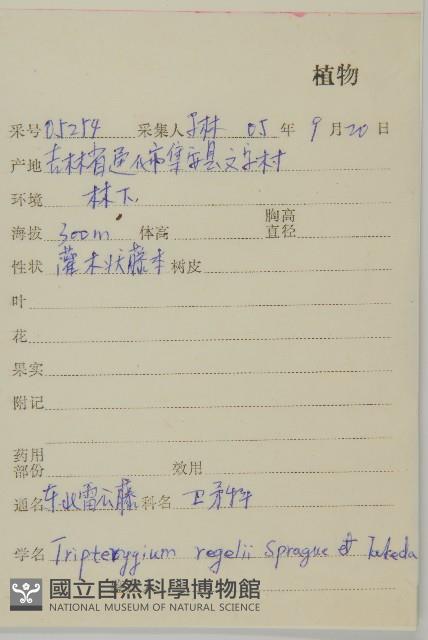 植物
采号 05254 采集人 林 05 年 9 月 20 日
产地 吉林省通化市集安县文字村
环境 林下.
海拔 300m 体高 胸高直径
性状 灌木状藤本 树皮
叶
花
果实
附记
药用部份 效用
通名 东北雷公藤 科名 卫矛科
学名 Tripterygium regelii Sprague et Takeda
國立自然科學博物館
NATIONAL MUSEUM OF NATURAL SCIENCE